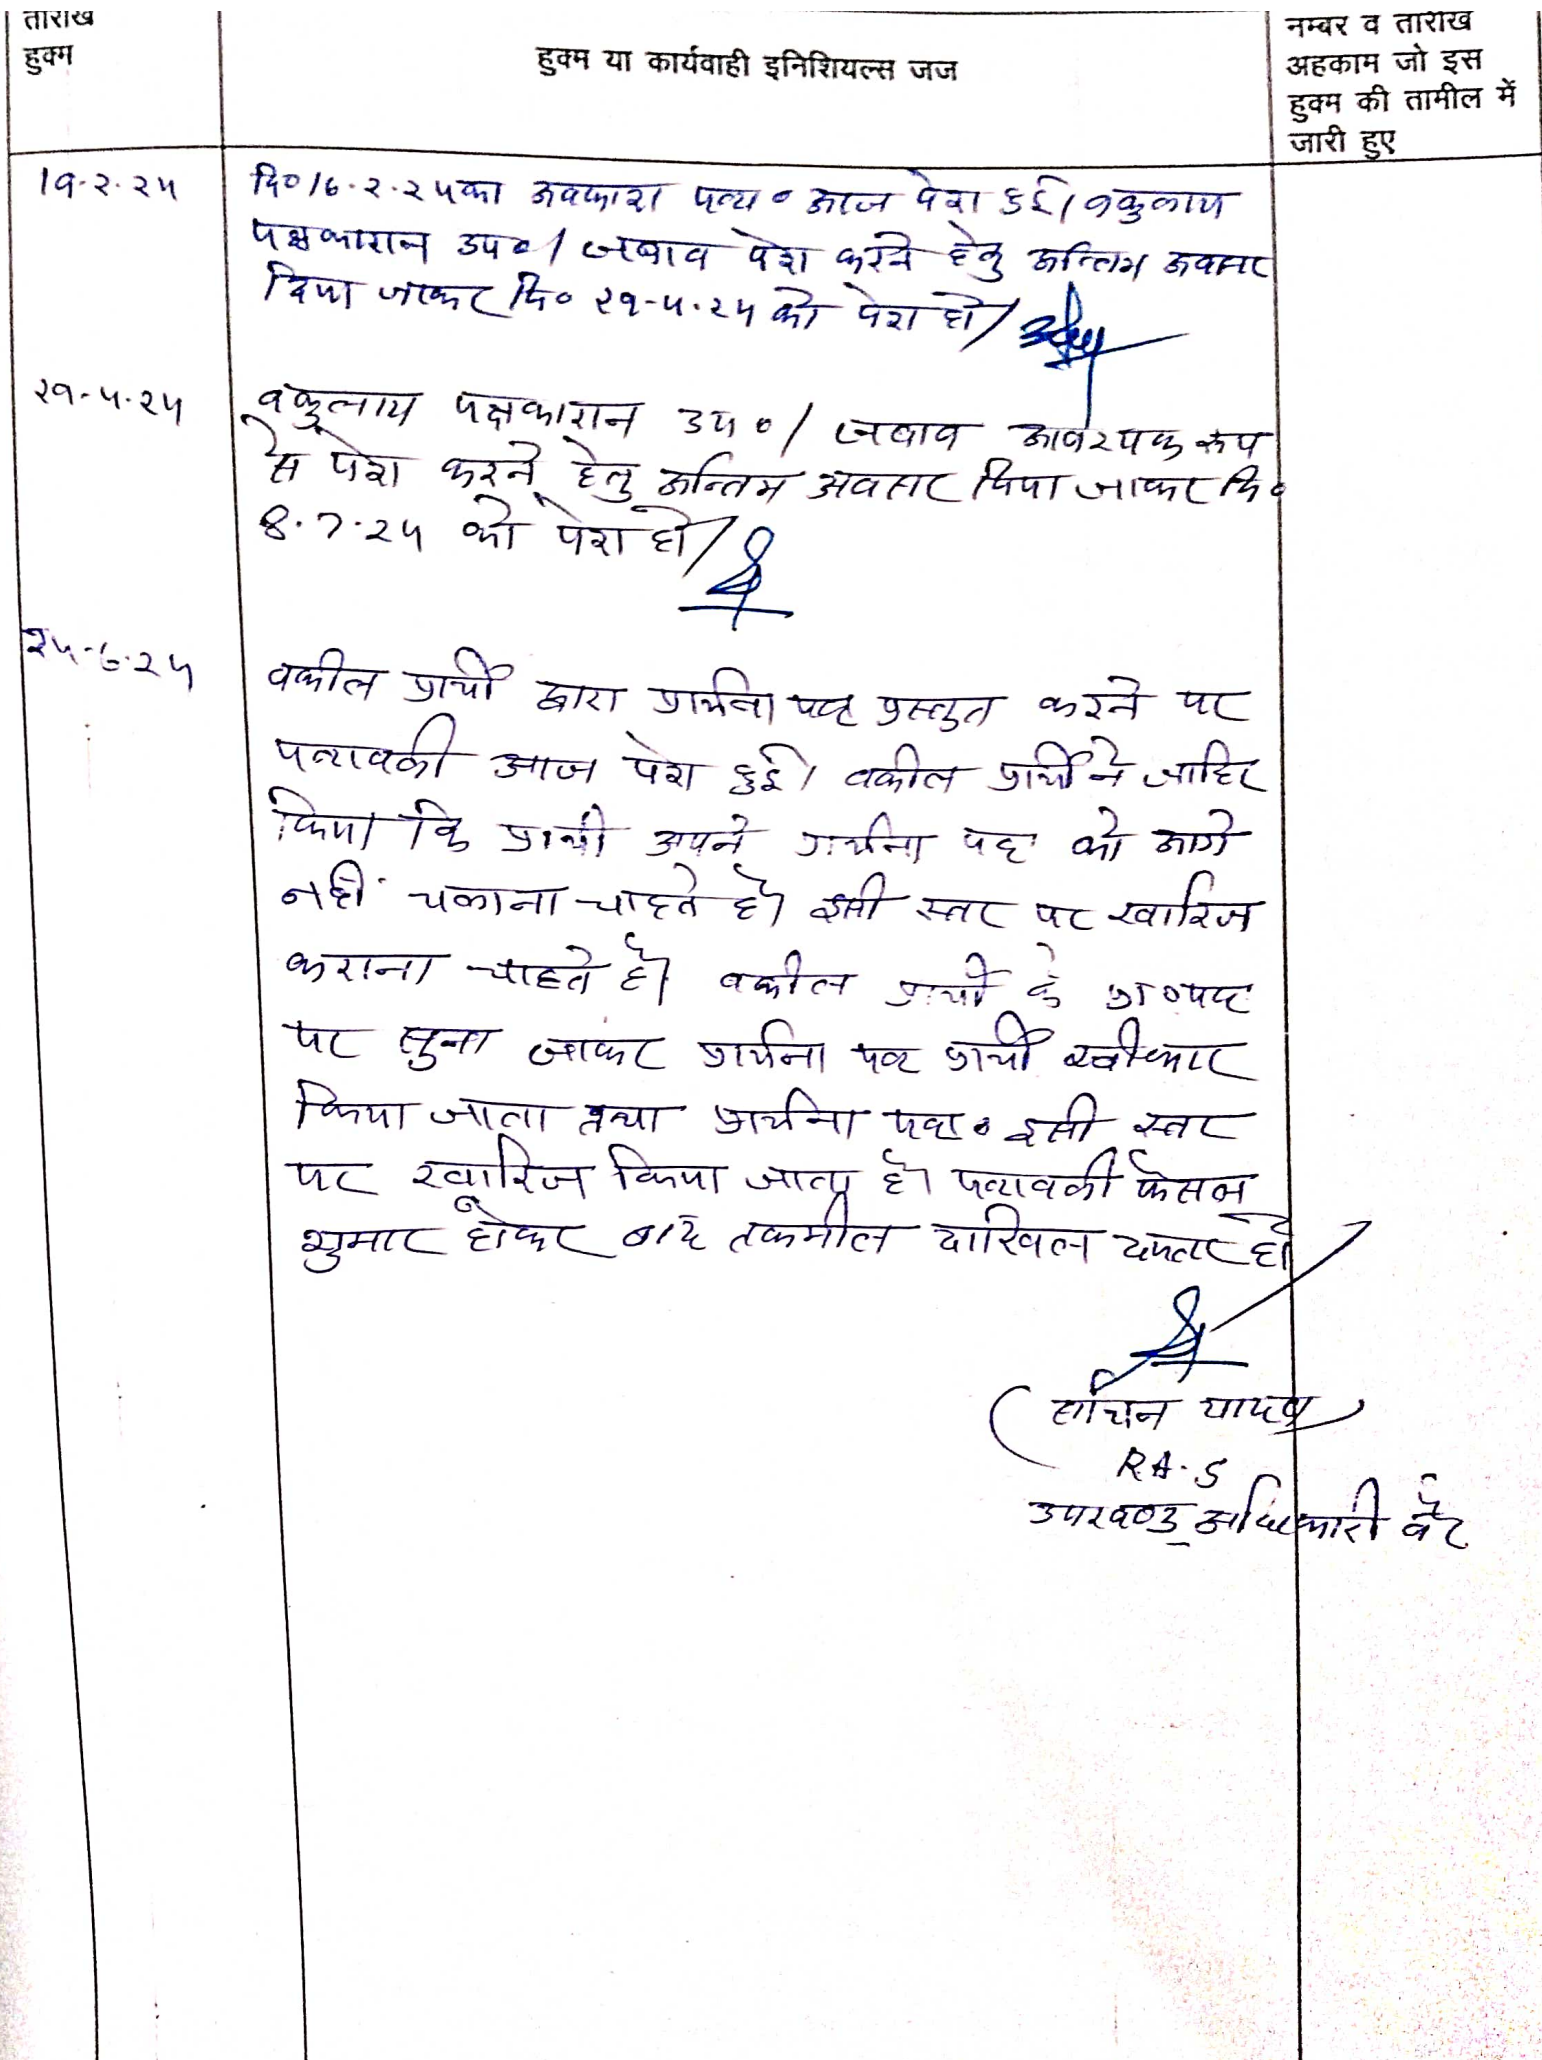 तारीख
हुक्म
हुक्म या कार्यवाही इनिशियल्स जज
नम्बर व तारीख
अहकाम जो इस
हुक्म की तामील में
जारी हुए
19.2.25
दि० 16.2.25 का अवकाश पत्रा० आज पेश हुई। वकुलाय
पक्षकारान उप०। जवाब पेश करने हेतु अन्तिम अवसर
दिया जाकर दि० 29-4.25 को पेश हो।
29.4.25
वकुलाय पक्षकारान उप०। जवाब आवश्यक रूप
से पेश करने हेतु अन्तिम अवसर दिया जाकर दि०
8.7.25 को पेश हो।
25.6.25
वकील प्रार्थी द्वारा प्रार्थना पत्र प्रस्तुत करने पर
पत्रावली आज पेश हुई। वकील प्रार्थी ने जाहिर
किया कि प्रार्थी अपने प्रार्थना पत्र को आगे
नहीं चलाना चाहते है। इसी स्तर पर खारिज
कराना चाहते है। वकील प्रार्थी के प्रा०पत्र
पर सुना जाकर प्रार्थना पत्र प्रार्थी स्वीकार
किया जाता तथा प्रार्थना पत्र० इसी स्तर
पर खारिज किया जाता है। पत्रावली फैसल
शुमार होकर बाद तकमील दाखिल दफ्तर हो।
(सचिन यादव)
R.A.S
उपखण्ड अधिकारी वैर